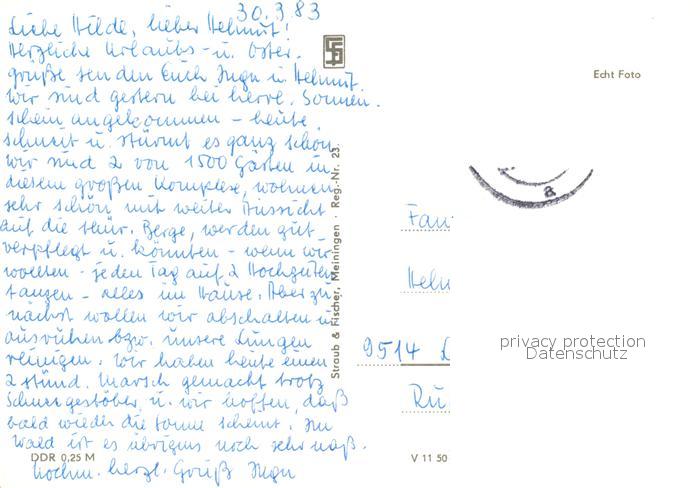 30.3.83
Liebe Hilde, lieber Helmut!
Herzliche Urlaubs- u. Oster-
grüße senden Euch Inge u. Helmut.
Wir sind gestern bei herrl. Sonnen-
schein angekommen - heute
schneit u. stürmt es ganz schön.
Wir sind 2 von 1500 Gästen in
diesem großen Komplex, wohnen
sehr schön mit weiter Aussicht
auf die thür. Berge, werden gut
verpflegt u. könnten - wenn wir
wollten - jeden Tag auf 2 Hochzeiten
tanzen - alles im Hause. Aber zu-
nächst wollen wir abschalten u.
ausruhen bzw. unsere Lungen
reinigen. Wir haben heute einen
2 stünd. Marsch gemacht trotz
Schneegestöber u. wir hoffen, daß
bald wieder die Sonne scheint. Im
Wald ist es übrigens noch sehr naß.
Nochm. herzl. Gruß Inge
DDR 0,25 M
Straub & Fischer, Meiningen · Reg.-Nr. 23
Echt Foto
a
Fam
Helm
9514
Ru
V 11 50
privacy protection
Datenschutz